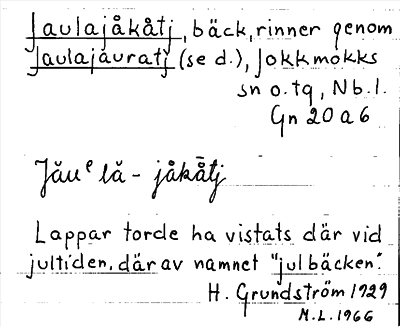 Jaulajåkåtj, bäck, rinner genom
Jaulajauratj (se d.), Jokkmokks
sn o. tg, Nb. l.
Gn 20 a 6
Jăuᵉlă - jåkātj
Lappar torde ha vistats där vid
jultiden, därav namnet "julbäcken".
H. Grundström 1929
M.L. 1966